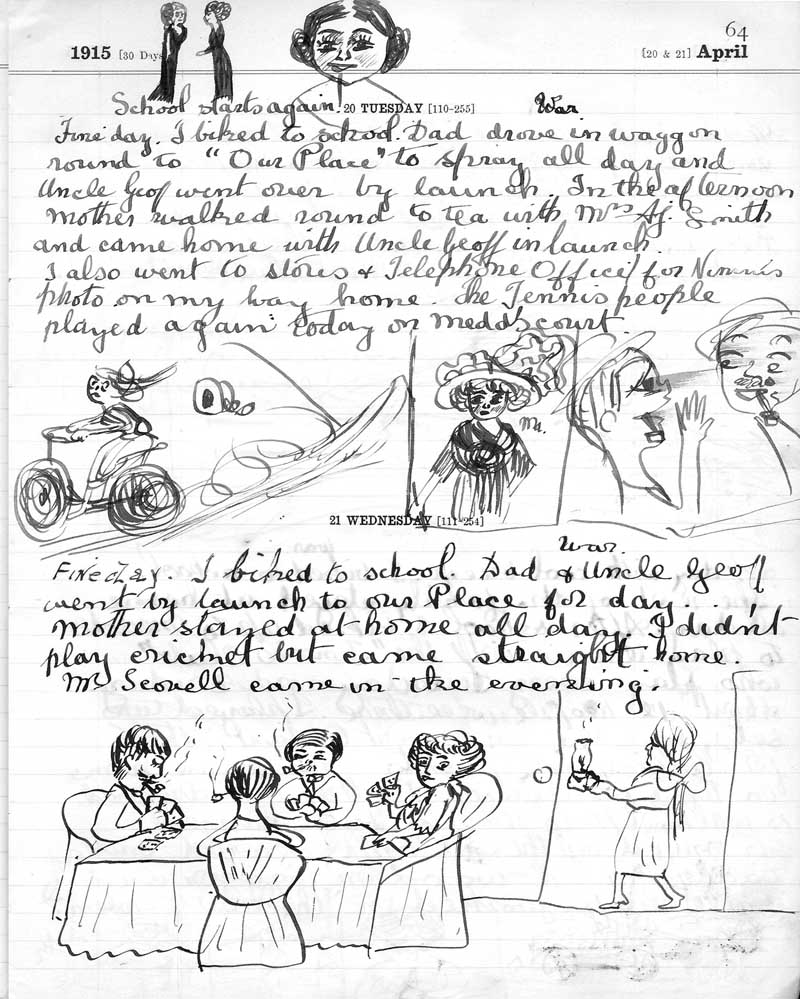 64
1915 [30 Days]
[20 & 21] April
School starts again. 20 TUESDAY [110-255] War
Fine day. I biked to school. Dad drove in waggon
round to "Our Place" to spray all day and
Uncle Geof went over by launch. In the afternoon
Mother walked round to tea with Mrs Aj. Smith
and came home with Uncle Geoff in launch.
I also went to stores & Telephone Office for
photo on my way home. The Tennis people
played again today on Medd's court.
Mr.
21 WEDNESDAY [111-254]
War.
Fine day. I biked to school. Dad & Uncle Geoff
went by launch to our Place for day...
Mother stayed at home all day. I didn't
play cricket but came straight home.
Mr Scovell came in the evening.